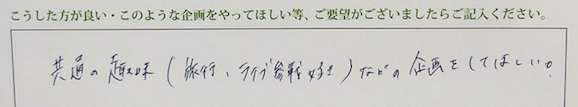 こうした方が良い・このような企画をやってほしい等、ご要望がございましたらご記入ください。
共通の趣味(旅行、ライブ参戦好き)などの企画をしてほしい。